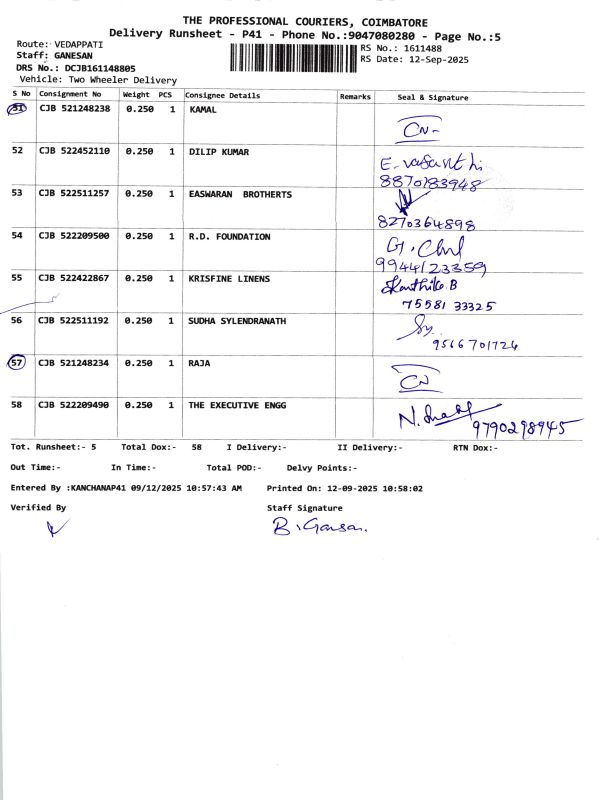 THE PROFESSIONAL COURIERS, COIMBATORE
Delivery Runsheet - P41 - Phone No.:9047080280 - Page No.:5
Route: VEDAPPATI
Staff: GANESAN
DRS No.: DCJB161148805
Vehicle: Two Wheeler Delivery
RS No.: 1611488
RS Date: 12-Sep-2025
S No Consignment No Weight PCS Consignee Details Remarks Seal & Signature
51 CJB 521248238 0.250 1 KAMAL CN-
52 CJB 522452110 0.250 1 DILIP KUMAR E. vasanthi
8870183948
53 CJB 522511257 0.250 1 EASWARAN BROTHERTS
8270364898
54 CJB 522209500 0.250 1 R.D. FOUNDATION
9944123359
55 CJB 522422867 0.250 1 KRISFINE LINENS Karthika B
75581 33325
56 CJB 522511192 0.250 1 SUDHA SYLENDRANATH
9566701724
57 CJB 521248234 0.250 1 RAJA CN
58 CJB 522209490 0.250 1 THE EXECUTIVE ENGG
9790298945
Tot. Runsheet:- 5 Total Dox:- 58 I Delivery:- II Delivery:- RTN Dox:-
Out Time:- In Time:- Total POD:- Delvy Points:-
Entered By :KANCHANAP41 09/12/2025 10:57:43 AM Printed On: 12-09-2025 10:58:02
Verified By Staff Signature